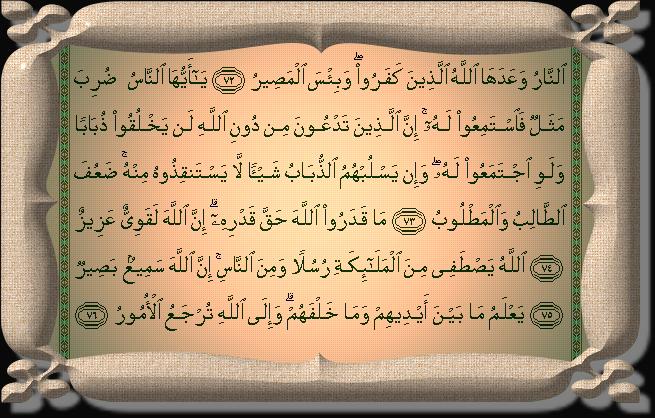 ٱلنَّارُ وَعَدَهَا ٱللَّهُ ٱلَّذِينَ كَفَرُوا۟ ۖ وَبِئْسَ ٱلْمَصِيرُ ﴿٧٢﴾ يَـٰٓأَيُّهَا ٱلنَّاسُ ضُرِبَ
مَثَلٌ فَٱسْتَمِعُوا۟ لَهُۥٓ ۚ إِنَّ ٱلَّذِينَ تَدْعُونَ مِن دُونِ ٱللَّهِ لَن يَخْلُقُوا۟ ذُبَابًا
وَلَوِ ٱجْتَمَعُوا۟ لَهُۥ ۖ وَإِن يَسْلُبْهُمُ ٱلذُّبَابُ شَيْـًٔا لَّا يَسْتَنقِذُوهُ مِنْهُ ۚ ضَعُفَ
ٱلطَّالِبُ وَٱلْمَطْلُوبُ ﴿٧٣﴾ مَا قَدَرُوا۟ ٱللَّهَ حَقَّ قَدْرِهِۦٓ ۗ إِنَّ ٱللَّهَ لَقَوِىٌّ عَزِيزٌ
﴿٧٤﴾ ٱللَّهُ يَصْطَفِى مِنَ ٱلْمَلَـٰٓئِكَةِ رُسُلًا وَمِنَ ٱلنَّاسِ ۚ إِنَّ ٱللَّهَ سَمِيعٌۢ بَصِيرٌ
﴿٧٥﴾ يَعْلَمُ مَا بَيْنَ أَيْدِيهِمْ وَمَا خَلْفَهُمْ ۗ وَإِلَى ٱللَّهِ تُرْجَعُ ٱلْأُمُورُ ﴿٧٦﴾